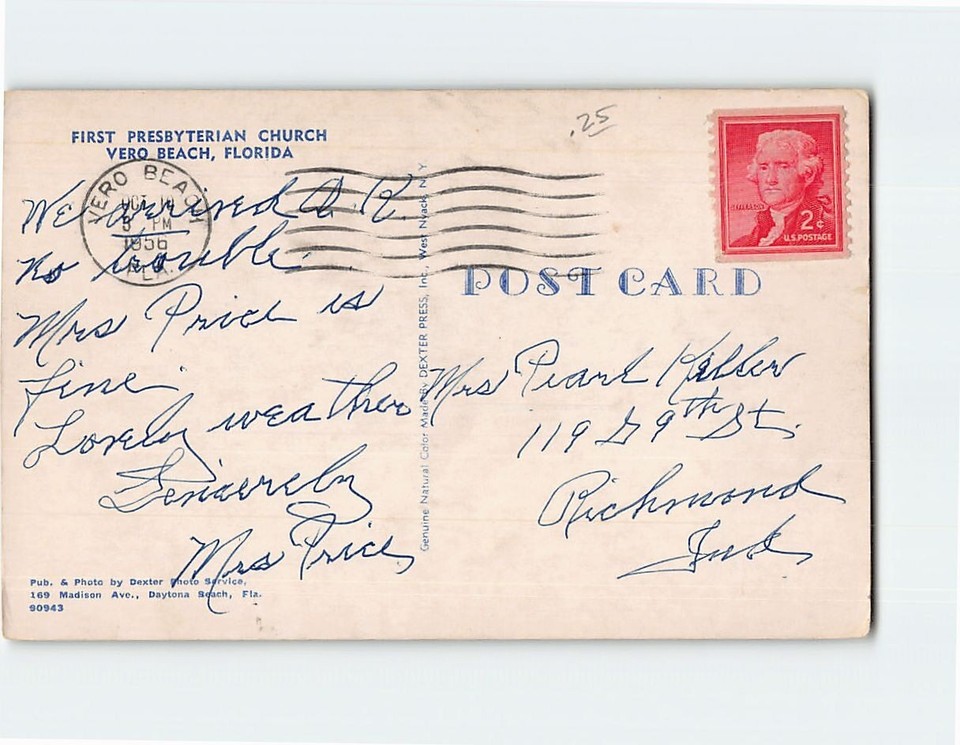 FIRST PRESBYTERIAN CHURCH
VERO BEACH, FLORIDA
.25
VERO BEACH
OCT 10
3 PM
1956
FLA.
JEFFERSON
2¢
U.S. POSTAGE
POST CARD
We arrived O.K.
no trouble.
Mrs Price is
fine.
Lovely weather
Sincerely
Mrs Price
Genuine Natural Color Made By DEXTER PRESS, Inc., West Nyack, N.Y.
Mrs Pearl Keller
119 S 9th St.
Richmond
Ind
Pub. & Photo by Dexter Photo Service,
169 Madison Ave., Daytona Beach, Fla.
90943